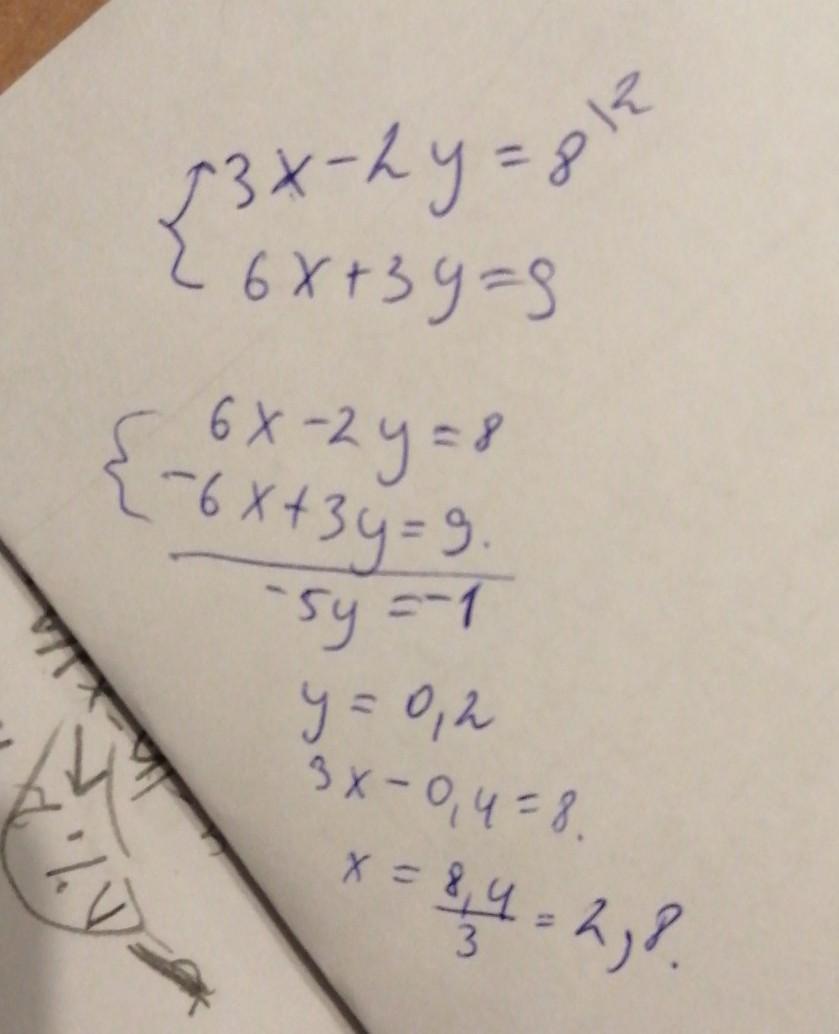 { 3x-2y=8 \2
6x+3y=9
{ 6x-2y=8
-6x+3y=9.
-5y=-1
y=0,2
3x-0,4=8.
x=8,4/3=2,8.